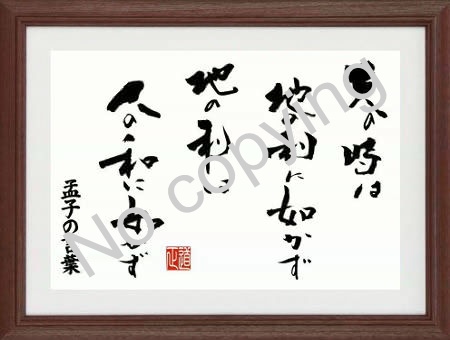 天の時は
地の利に如かず
地の利は
人の和に如かず
孟子の言葉
No copying